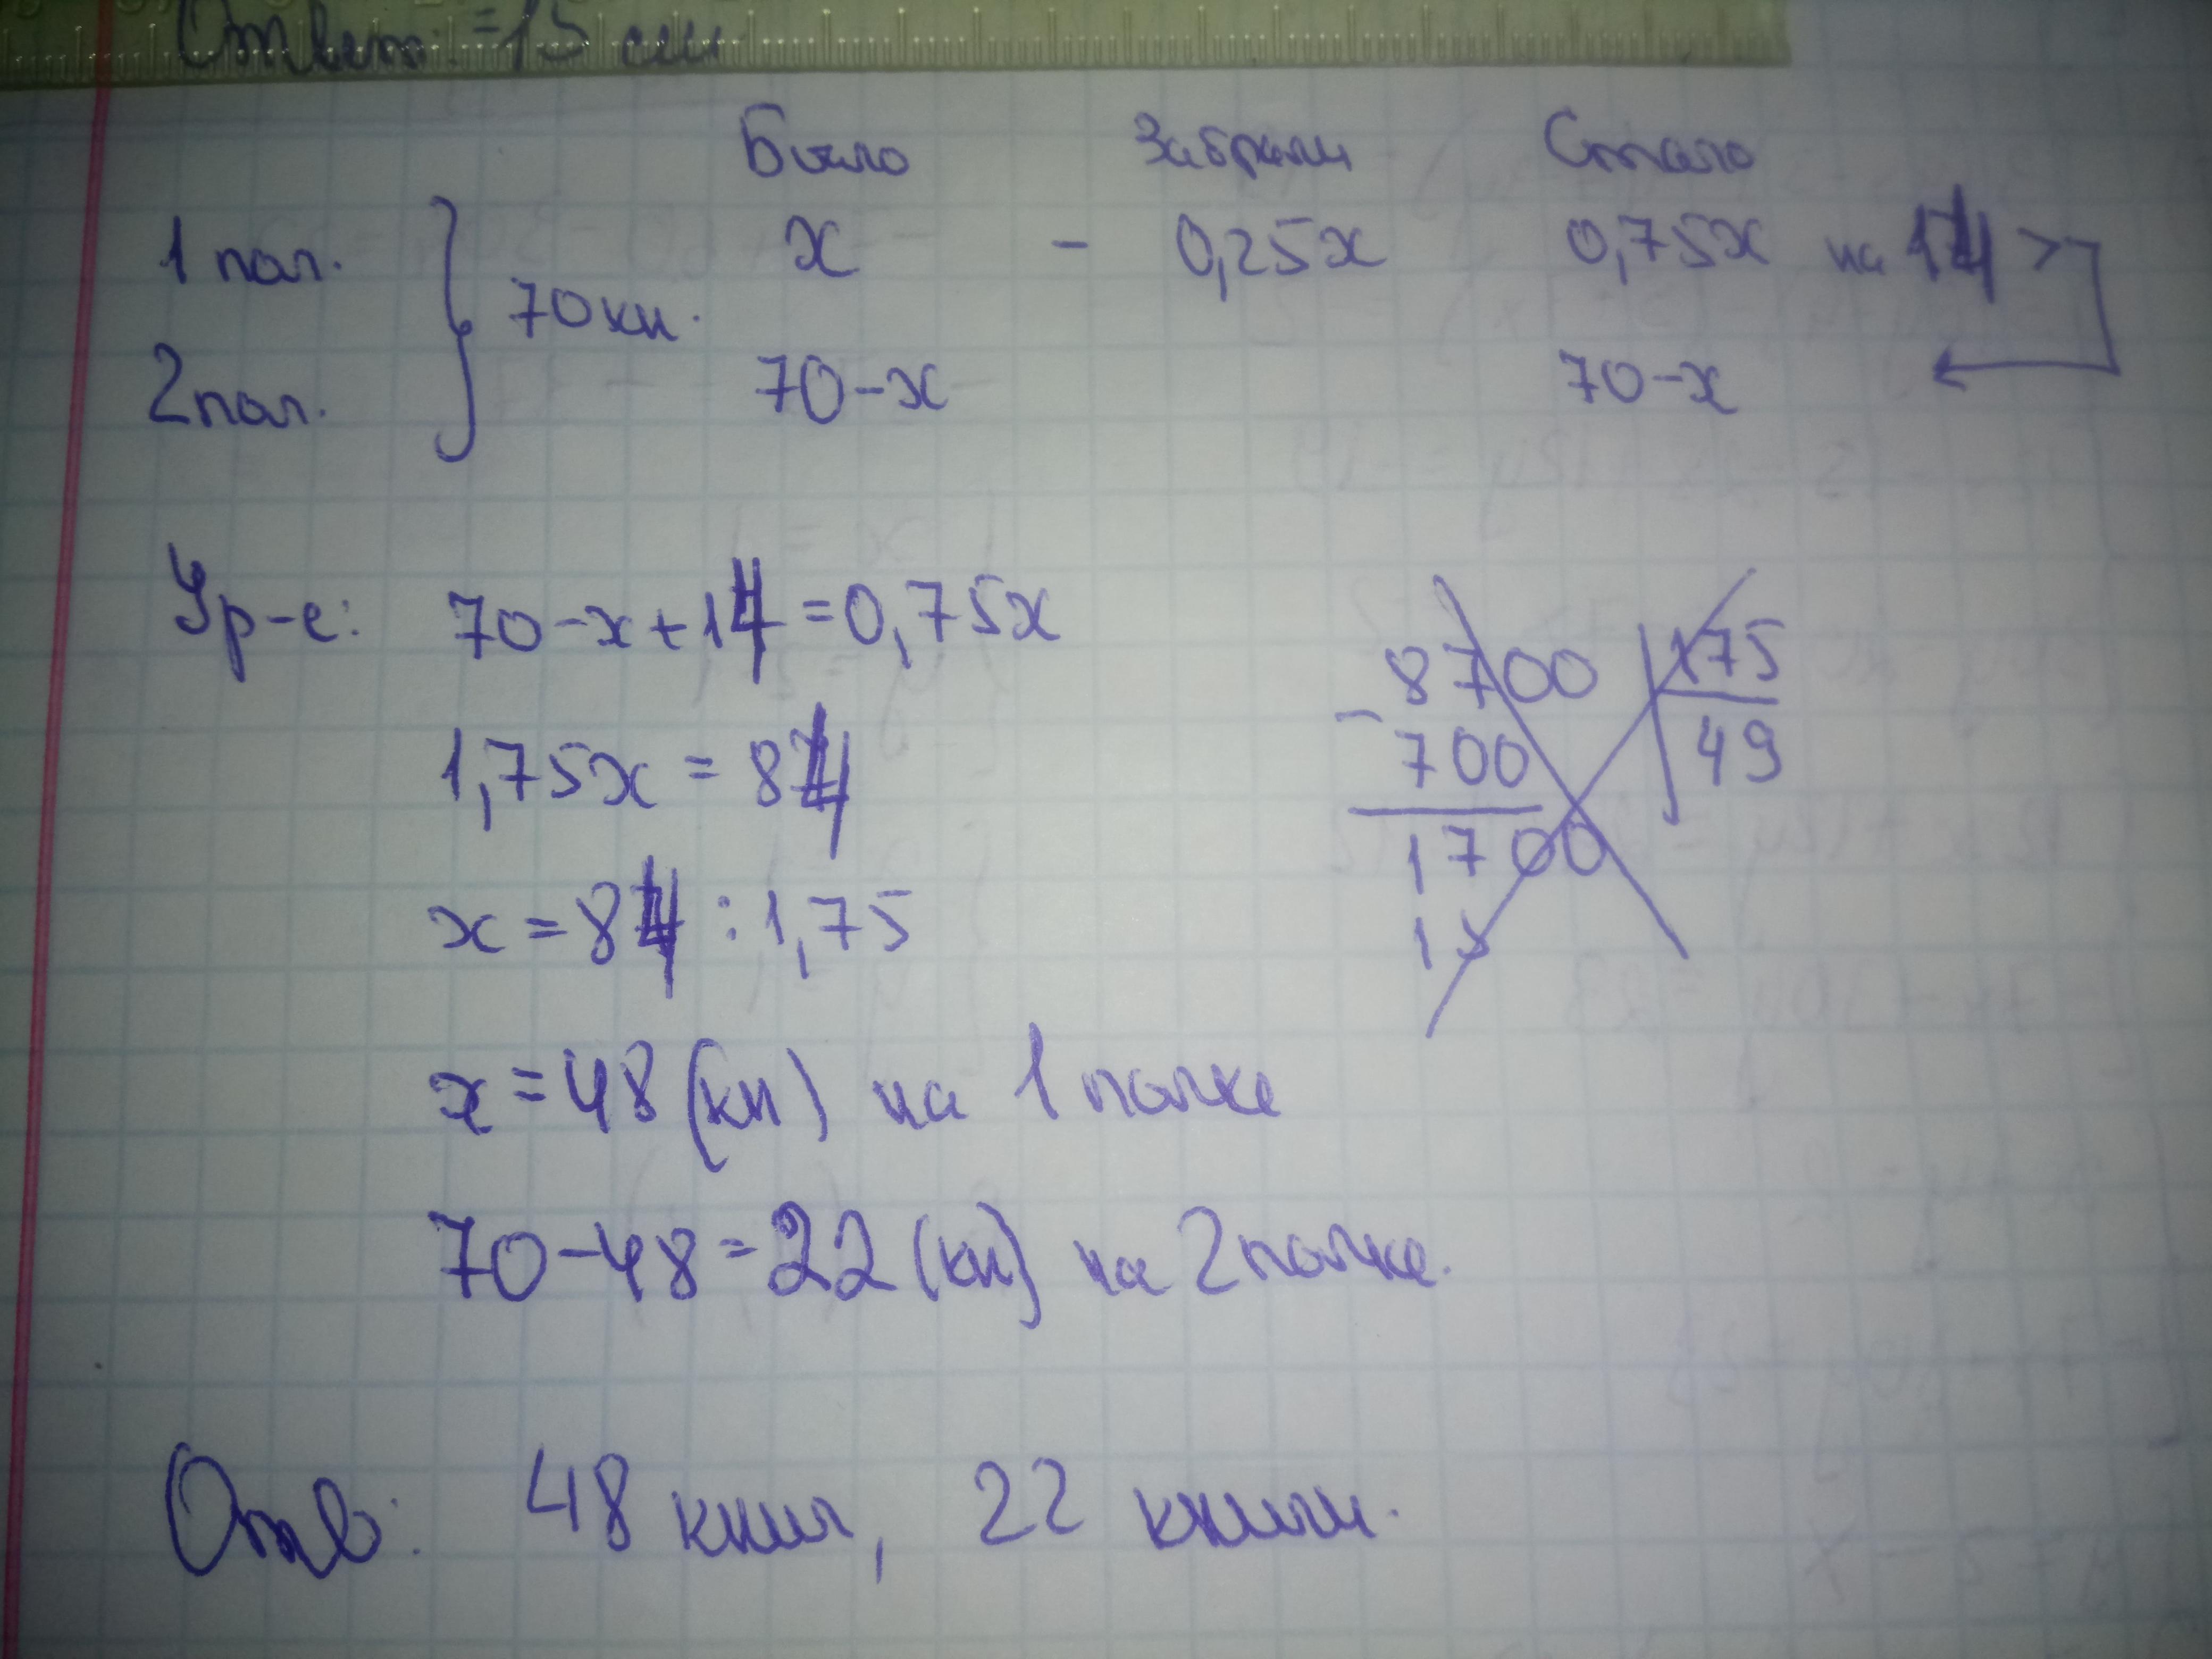 Ответ: =15 см
Было Забрали Стало
1 пол. х - 0,25х 0,75х на 14 >
70 кн.
2 пол. 70-х 70-х
Ур-е: 70-х+14=0,75х
1,75х = 84
х = 84 : 1,75
х = 48 (кн) на 1 полке
70-48=22 (кн) на 2 полке.
8700 175
- 700 49
1700
15
Отв: 48 книг, 22 книги.